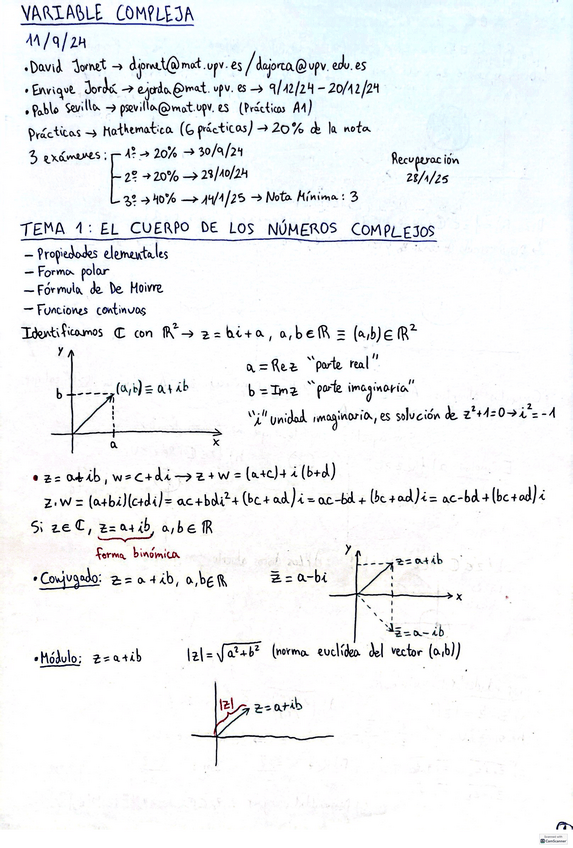 VARIABLE COMPLEJA
11/9/24
• David Jornet → djornet@mat.upv.es / dajorca@upv.edu.es
• Enrique Jordá → ejorda@mat.upv.es → 9/12/24 - 20/12/24
• Pablo Sevilla → psevilla@mat.upv.es (Prácticas A1)
Prácticas → Mathematica (6 prácticas) → 20% de la nota
3 exámenes: 1º → 20% → 30/9/24
Recuperación
28/1/25
2º → 20% → 28/10/24
3º → 40% → 14/1/25 → Nota Mínima: 3
TEMA 1: EL CUERPO DE LOS NÚMEROS COMPLEJOS
- Propiedades elementales
- Forma polar
- Fórmula de De Moivre
- Funciones continuas
Identificamos ℂ con ℝ² → z = bi + a, a,b ∈ ℝ ≡ (a,b) ∈ ℝ²
y
b
(a,b) ≡ a + ib
a
x
a = Re z "parte real"
b = Im z "parte imaginaria"
"i" unidad imaginaria, es solución de z² + 1 = 0 → i² = -1
• z = a + ib, w = c + di → z + w = (a+c) + i(b+d)
z·w = (a+bi)(c+di) = ac + bdi² + (bc+ad)i = ac - bd + (bc+ad)i = ac - bd + (bc+ad)i
Si z ∈ ℂ, z = a + ib, a,b ∈ ℝ
forma binómica
• Conjugado: z = a + ib, a,b ∈ ℝ z̄ = a - bi
y
z = a + ib
x
z̄ = a - ib
• Módulo: z = a + ib |z| = √(a² + b²) (norma euclídea del vector (a,b))
|z|
z = a + ib
Scanned with
CamScanner